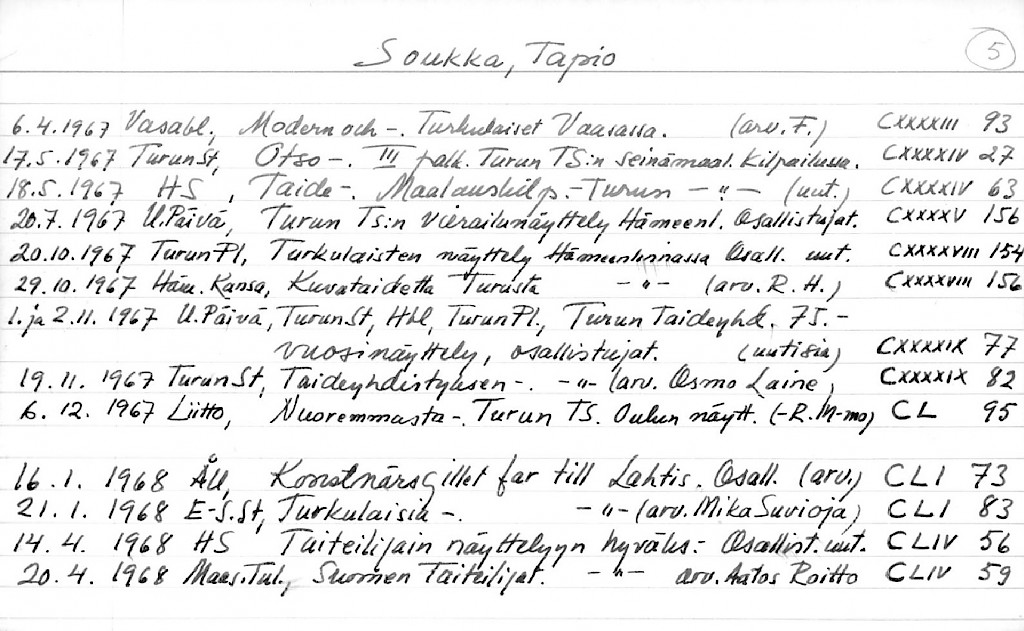 Soukka, Tapio 5
6.4.1967 Vasabl., Modern och -. Turkulaiset Vaasassa. (arv. F.) CXXXXIII 93
17.5.1967 TurunSt, Otso -. III palk. Turun TS:n seinämaal. Kilpailussa. CXXXXIV 27
18.5.1967 HS, Taide -. Maalauskilp. - Turun - " - (uut.) CXXXXIV 63
20.7.1967 U.Päivä, Turun Ts:n Vierailunäyttely Hämeenl. Osallistujat. CXXXXV 156
20.10.1967 TurunPl, Turkulaisten näyttely Hämeenlinnassa Osall. uut. CXXXXVIII 154
29.10.1967 Häm. Kansa, Kuvataidetta Turusta - " - (arv. R. H.) CXXXXVIII 156
1. ja 2.11.1967 U.Päivä, TurunSt, Hbl, TurunPl., Turun Taideyhd. 75.-
vuosinäyttely, osallistujat. (uutisia) CXXXXIX 77
19.11.1967 TurunSt, Taideyhdistyksen -. - " - (arv. Osmo Laine) CXXXXIX 82
6.12.1967 Liitto, Nuoremmasta -. Turun TS. Oulun näytt. (-R. M-mo) CL 95
16.1.1968 ÅU, Konstnärsgillet far till Lahtis. Osall. (arv.) CLI 73
21.1.1968 E-S.St, Turkulaisia -. - " - (arv. Mika Suvioja) CLI 83
14.4.1968 HS Taiteilijain näyttelyyn hyväks:- Osallist. uut. CLIV 56
20.4.1968 Maas.Tul., Suomen Taiteilijat. - " - arv. Aatos Roitto CLIV 59